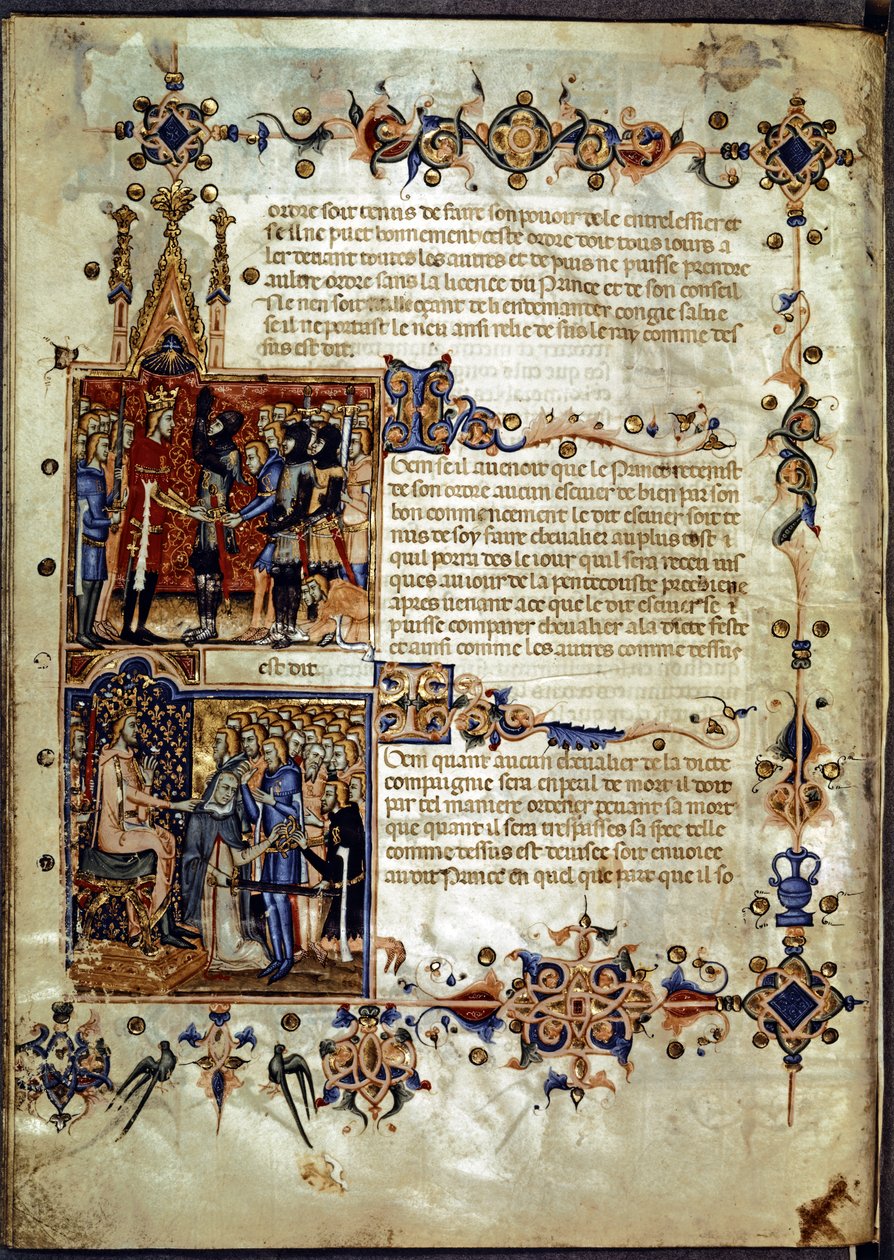 ordre soit tenus de faire son povoir de le entrelessier et
se il ne puet bonnement ceste ordre doit tous iours a
ler devant toutes les autres et de puis ne puisse prendre
aultre ordre sans la licence du Prince et de son conseil
se il ne portast le neu ansi relie desus le ray comme des
sus est dit.
Item seil avenoit que le Prince retenist
de son ordre aucun escuier de bien par son
bon commencement le dit escuier soit te
nus de soy faire chevalier au plus tost
quil porra des le iour quil sera receu ius
ques au iour de la pentecouste
apres venant a ce que le dit escuier
puisse comparer chevalier a la dicte feste
et ansi comme les autres comme dessus
est dit
Item quant aucun chevalier de la dicte
compaignie sera en peril de mort il doit
par tel maniere ordener devant sa mort
que quant il sera trespasses sa spee telle
comme dessus est devisee soit envoiee
au dit Prince en quel que part que il so